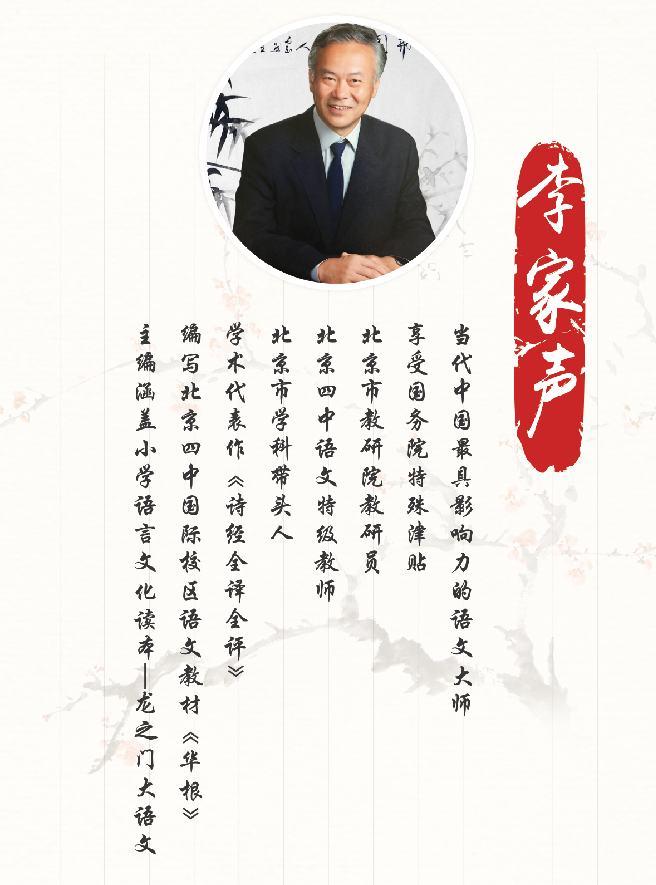 李家声
当代中国最具影响力的语文大师
享受国务院特殊津贴
北京市教研院教研员
北京四中语文特级教师
北京市学科带头人
学术代表作《诗经全译全评》
编写北京四中国际校区语文教材《华根》
主编涵盖小学语言文化读本—龙之门大语文